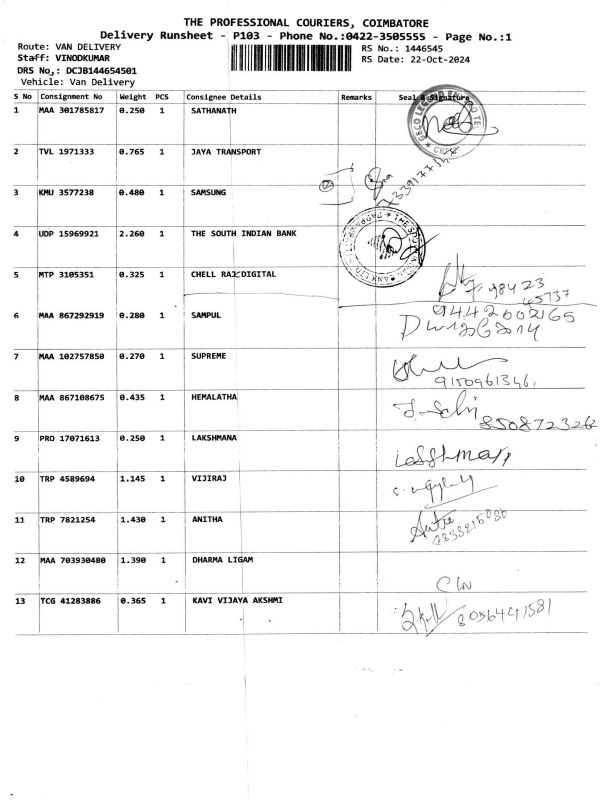 THE PROFESSIONAL COURIERS, COIMBATORE
Delivery Runsheet - P103 - Phone No.:0422-3505555 - Page No.:1
Route: VAN DELIVERY
RS No.: 1446545
Staff: VINODKUMAR
RS Date: 22-Oct-2024
DRS No,: DCJB144654501
Vehicle: Van Delivery
S No Consignment No Weight PCS Consignee Details Remarks Seal & Signature
1 MAA 301785817 0.250 1 SATHANATH
2 TVL 1971333 0.765 1 JAYA TRANSPORT
3 KMU 3577238 0.480 1 SAMSUNG
4 UDP 15969921 2.260 1 THE SOUTH INDIAN BANK
5 MTP 3105351 0.325 1 CHELL RAJ DIGITAL
98423
45737
6 MAA 867292919 0.280 1 SAMPUL 9442602165
7 MAA 102757850 0.270 1 SUPREME
9150961346
8 MAA 867108675 0.435 1 HEMALATHA
850872326
9 PRO 17071613 0.250 1 LAKSHMANA
10 TRP 4589694 1.145 1 VIJIRAJ
11 TRP 7821254 1.430 1 ANITHA
12 MAA 703930480 1.390 1 DHARMA LIGAM
13 TCG 41283886 0.365 1 KAVI VIJAYA AKSHMI 8056441581